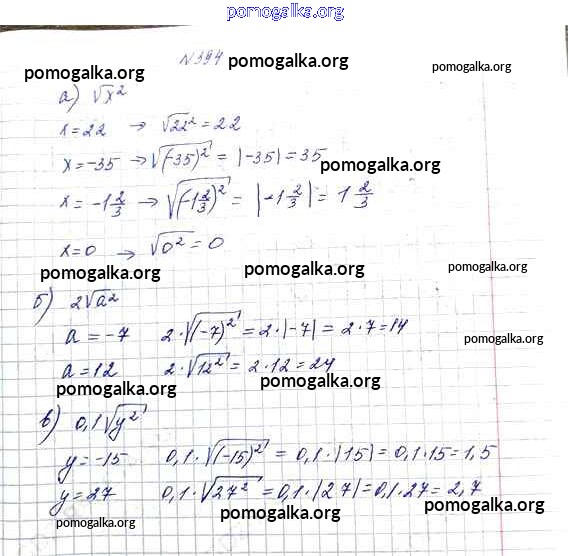 pomogalka.org
№394
pomogalka.org pomogalka.org pomogalka.org
а) √x²
x=22 → √22² = 22
x=-35 → √(-35)² = |-35| = 35
pomogalka.org
x = -1 2/3 → √(-1 2/3)² = |-1 2/3| = 1 2/3
x=0 → √0² = 0
pomogalka.org pomogalka.org pomogalka.org
б) 2√a²
a = -7 2·√(-7)² = 2·|-7| = 2·7=14
pomogalka.org
a = 12 2·√12² = 2·12 = 24
pomogalka.org pomogalka.org
в) 0,1√y²
y = -15 0,1·√(-15)² = 0,1·|15| = 0,1·15=1,5
y = 27 0,1·√27² = 0,1·|27| = 0,1·27 = 2,7
pomogalka.org pomogalka.org pomogalka.org